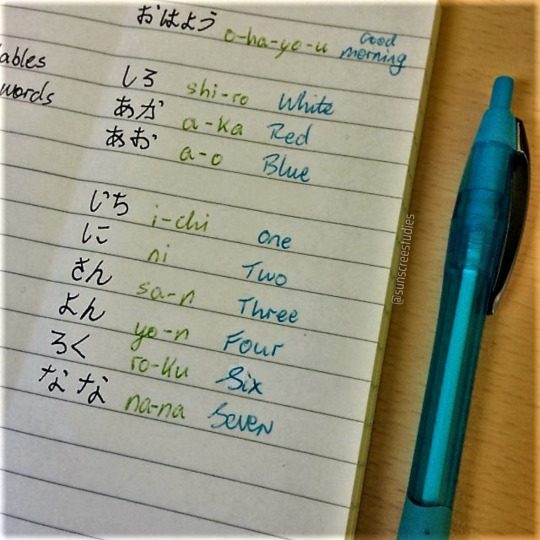 おはよう o-ha-yo-u Good
morning
ables
しろ shi-ro White
words
あか a-ka Red
あお a-o Blue
いち i-chi one
に ni Two
さん sa-n Three
よん yo-n Four
ろく ro-ku Six
なな na-na Seven
@sunscreestudies